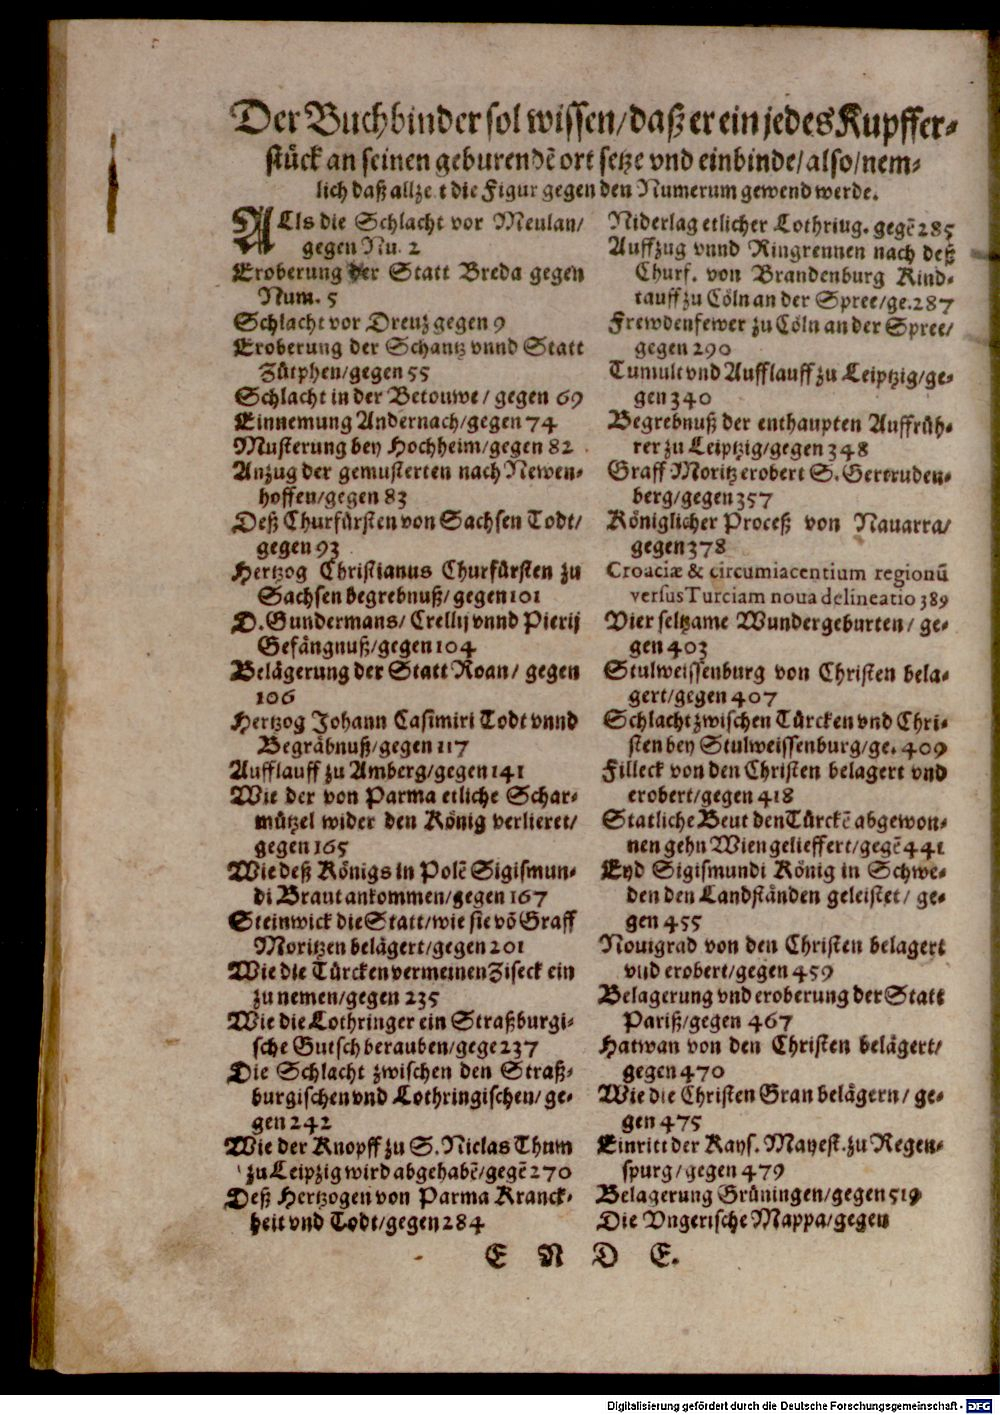 Der Buchbinder sol wissen/ daß er ein jedes Kupffer-
stück an seinen geburendē ort setze vnd einbinde/ also/ nem-
lich daß allzeit die Figur gegen den Numerum gewend werde.
ALls die Schlacht vor Meulan/
gegen Nu. 2
Eroberung der Statt Breda gegen
Num. 5
Schlacht vor Dreuz gegen 9
Eroberung der Schantz vnnd Statt
Zütphen/ gegen 55
Schlacht in der Betouwe/ gegen 69
Einnemung Andernach/ gegen 74
Musterung bey Hochheim/ gegen 82
Anzug der gemusterten nach Newen-
hoffen/ gegen 83
Deß Churfürsten von Sachsen Todt/
gegen 93
Hertzog Christianus Churfürsten zu
Sachsen begrebnuß/ gegen 101
D. Gundermans/ Crellij vnnd Pierij
Gefängnuß/ gegen 104
Belägerung der Statt Roan/ gegen
106
Hertzog Johann Casimiri Todt vnnd
Begräbnuß/ gegen 117
Aufflauff zu Amberg/ gegen 141
Wie der von Parma etliche Schar-
mützel wider den König verlieret/
gegen 165
Wie deß Königs in Polē Sigismun-
di Braut ankommen/ gegen 167
Steinwick die Statt/ wie sie vō Graff
Moritzen belägert/ gegen 201
Wie die Türcken vermeinen Ziseck ein
zu nemen/ gegen 235
Wie die Lothringer ein Straßburgi-
sche Gutsch berauben/ gege 237
Die Schlacht zwischen den Straß-
burgischen vnd Lothringischen/ ge-
gen 242
Wie der Knopff zu S. Niclas Thurn
zu Leipzig wird abgehabē/ gegē 270
Deß Hertzogen von Parma Kranck-
heit vnd Todt/ gegen 284
Niderlag etlicher Lothring. gegē 285
Auffzug vnnd Ringrennen nach deß
Churf. von Brandenburg Kind-
tauff zu Cöln an der Spree/ ge. 287
Frewdenfewer zu Cöln an der Spree/
gegen 290
Tumult vnd Aufflauff zu Leiptzig/ ge-
gen 340
Begrebnuß der enthaupten Auffrüh-
rer zu Leiptzig/ gegen 348
Graff Moritz erobert S. Gertruden-
berg/ gegen 357
Königlicher Proceß von Nauarra/
gegen 378
Croaciæ & circumiacentium regionū
versus Turciam noua delineatio 389
Vier seltzame Wundergeburten/ ge-
gen 403
Stulweissenburg von Christen bela-
gert/ gegen 407
Schlacht zwischen Türcken vnd Chri-
sten bey Stulweissenburg/ ge. 409
Filleck von den Christen belagert vnd
erobert/ gegen 418
Statliche Beut den Türckē abgewon-
nen gehn Wien gelieffert/ gegē 441
Eyd Sigismundi König in Schwe-
den den Landständen geleistet/ ge-
gen 455
Nouigrad von den Christen belagert
vnd erobert/ gegen 459
Belagerung vnd eroberung der Statt
Pariß/ gegen 467
Hatwan von den Christen belägert/
gegen 470
Wie die Christen Gran belägern/ ge-
gen 475
Einritt der Kays. Mayest. zu Regen-
spurg/ gegen 479
Belagerung Grüningen/ gegen 519
Die Vngerische Mappa/ gegen
E N D E.
Digitalisierung gefördert durch die Deutsche Forschungsgemeinschaft - DFG